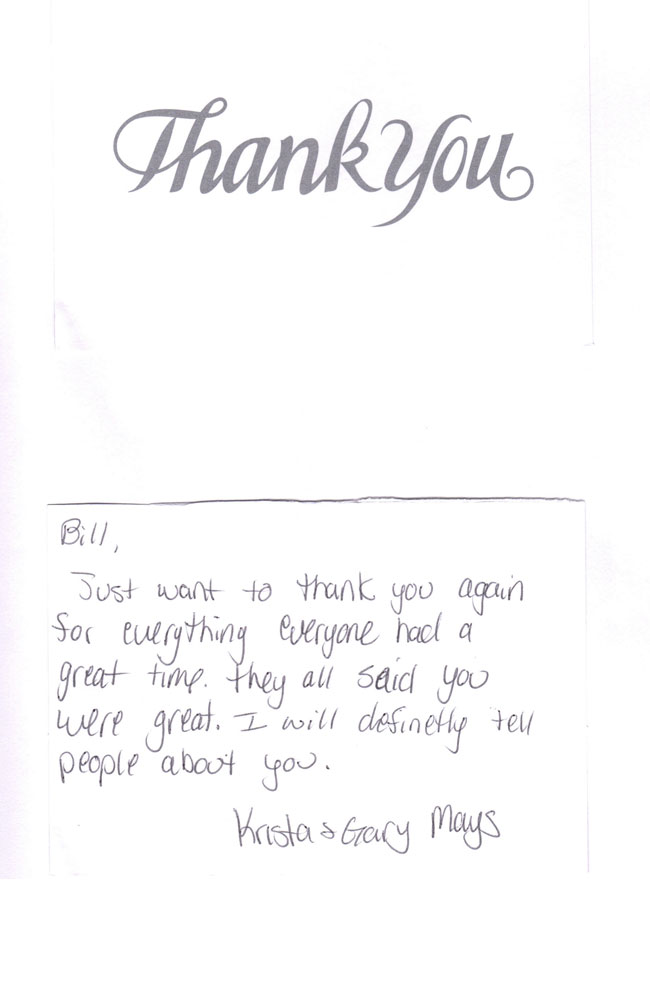 Thank You
Bill,
Just want to thank you again
for everything Everyone had a
great time. they all said you
were great. I will definetly tell
people about you.
Krista & Gary Mays